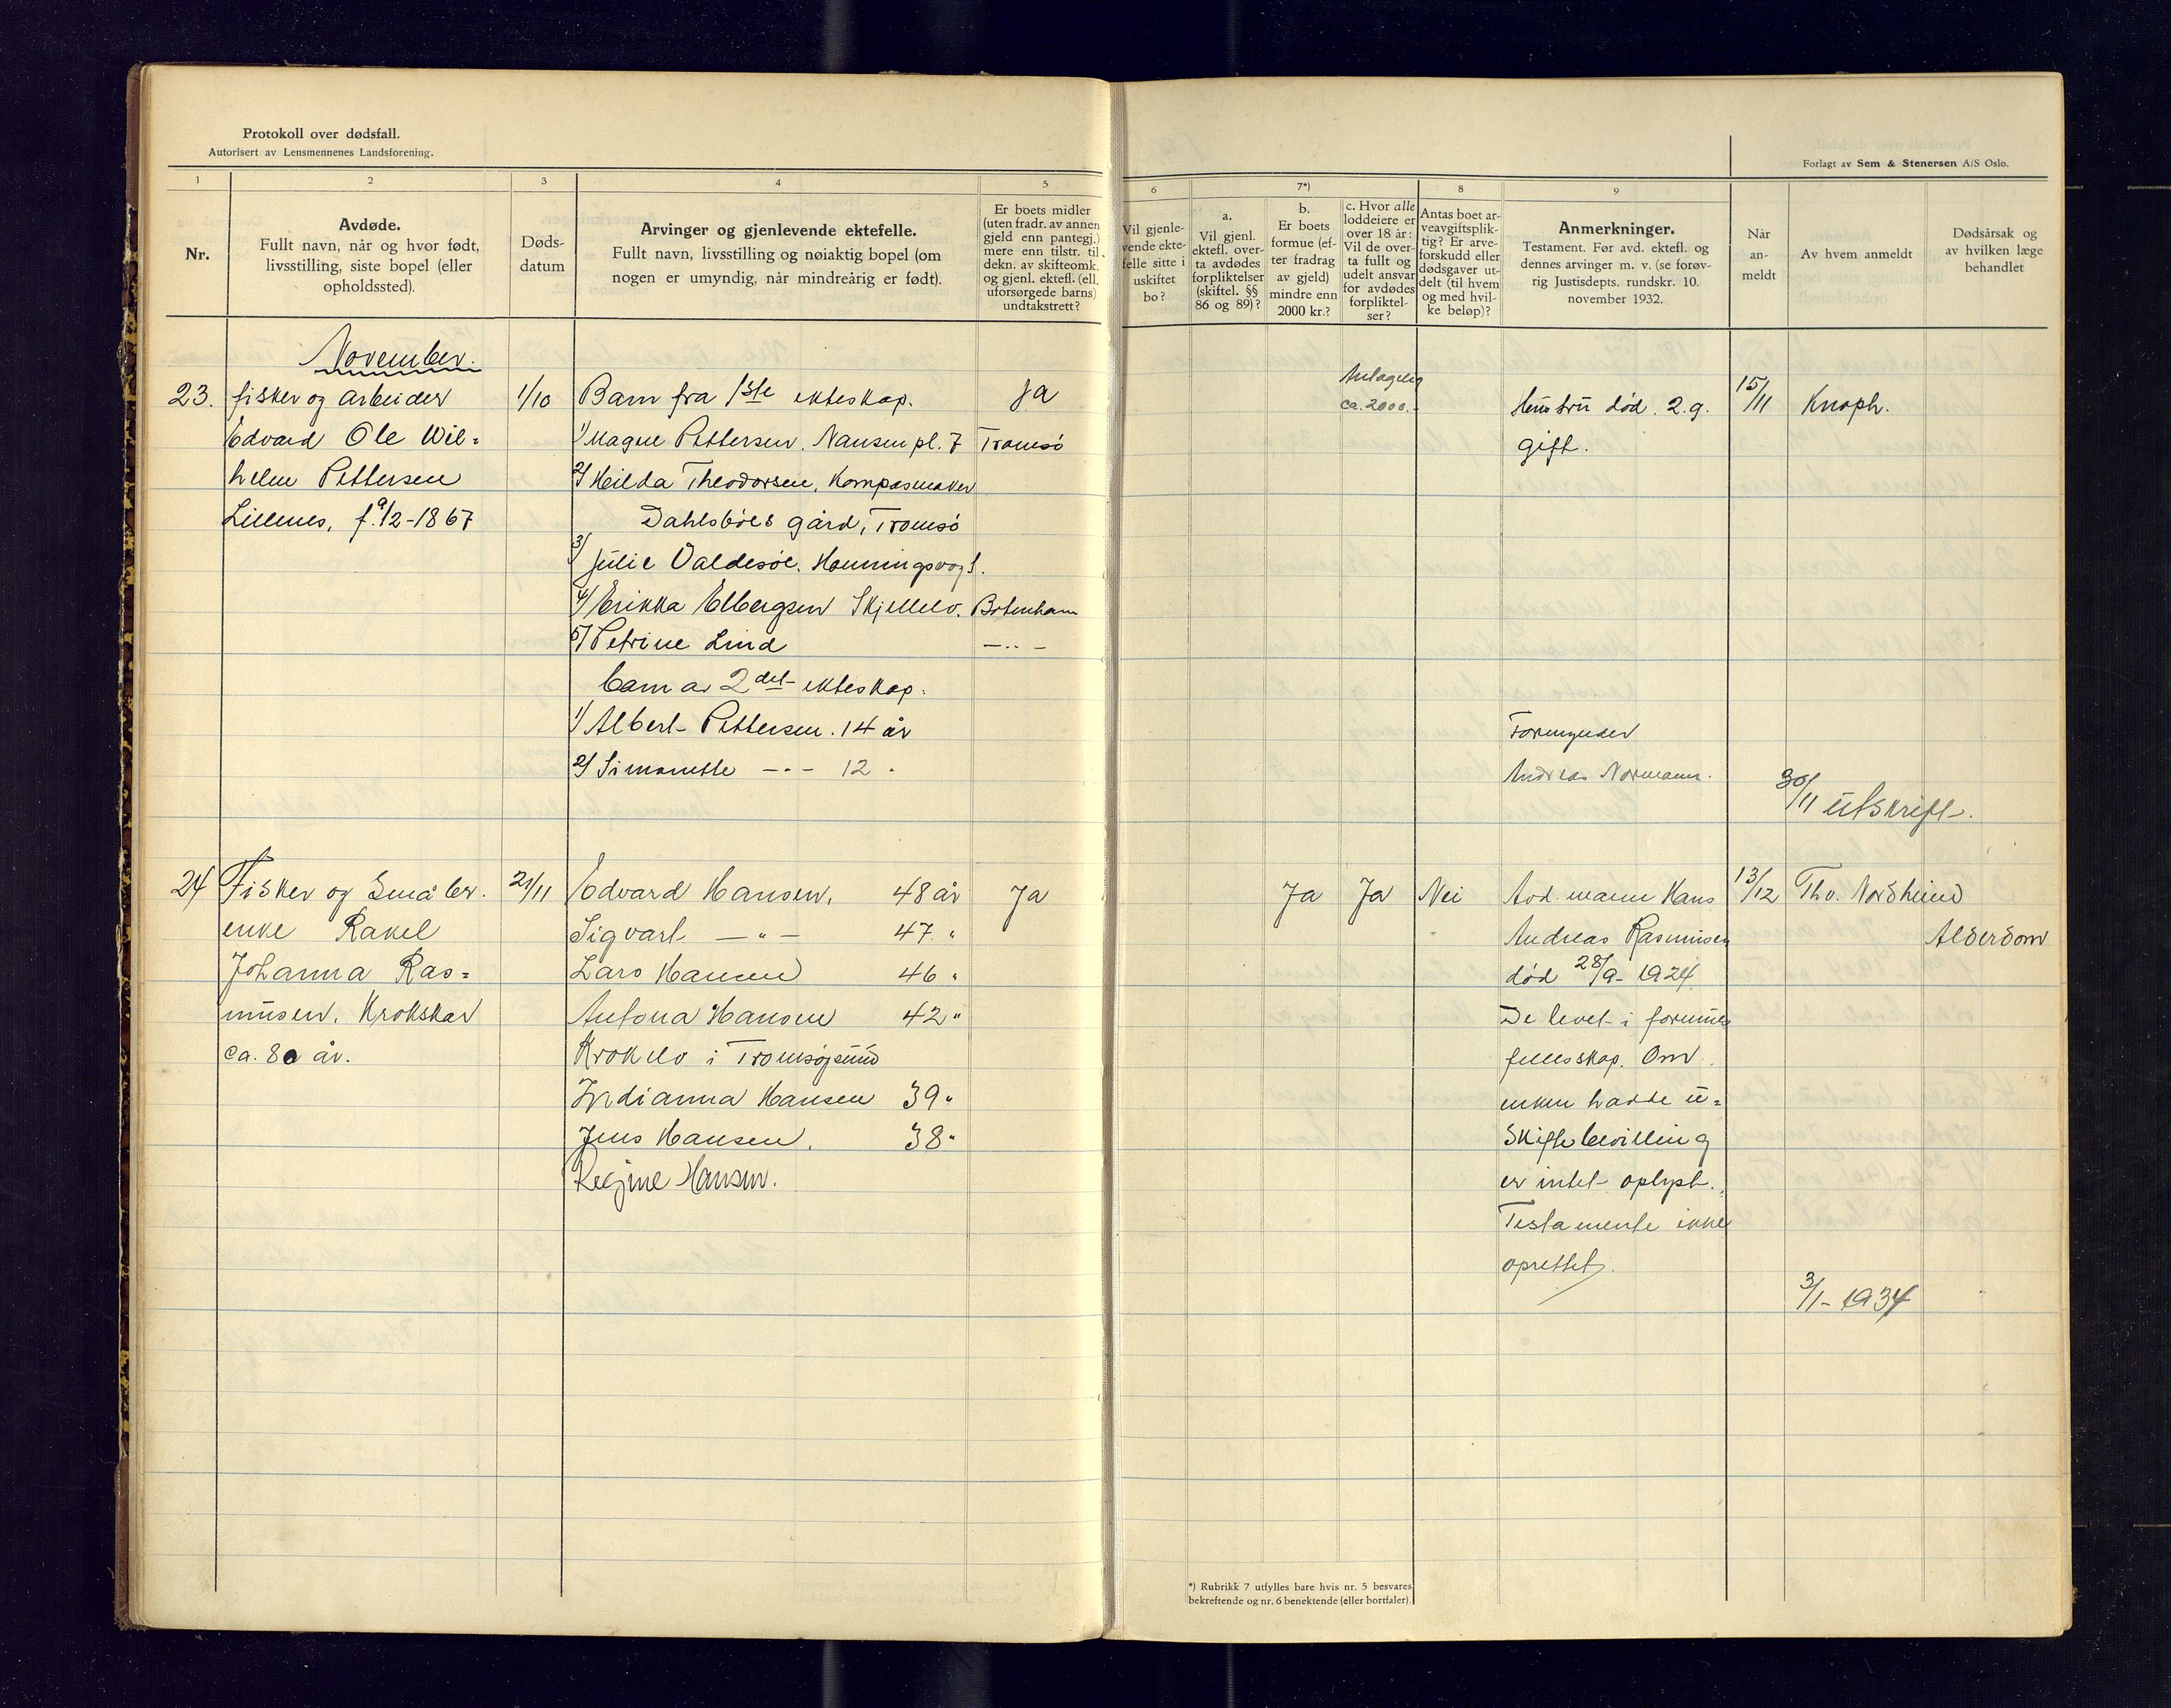 Protokoll over dødsfall.
Autorisert av Lensmennenes Landsforening.
Forlagt av Sem & Stenersen A/S Oslo.
1
2
3
4
5
6
7*)
8
9
Nr.
Avdøde.
Fullt navn, når og hvor født,
livsstilling, siste bopel (eller
opholdssted).
Døds-
datum
Arvinger og gjenlevende ektefelle.
Fullt navn, livsstilling og nøiaktig bopel (om
nogen er umyndig, når mindreårig er født).
Er boets midler
(uten fradr. av annen
gjeld enn pantegj.)
mere enn tilstr. til
dekn. av skifteomk.
og gjenl. ektefl. (ell.
uforsørgede barns)
undtakstrett?
Vil gjenle-
vende ekte-
felle sitte i
uskiftet
bo?
a.
Vil gjenl.
ektefl. over-
ta avdødes
forpliktelser
(skiftel. §§
86 og 89)?
b.
Er boets
formue (ef-
ter fradrag
av gjeld)
mindre enn
2000 kr.?
c. Hvor alle
loddeiere er
over 18 år:
Vil de over-
ta fullt og
udelt ansvar
for avdødes
forpliktel-
ser?
Antas boet ar-
veavgiftsplik-
tig? Er arve-
forskudd eller
dødsgaver ut-
delt (til hvem
og med hvil-
ke beløp)?
Anmerkninger.
Testament. Før avd. ektefl. og
dennes arvinger m. v. (se forøv-
rig Justisdepts. rundskr. 10.
november 1932.
Når
an-
meldt
Av hvem anmeldt
Dødsårsak og
av hvilken læge
behandlet
November.
23.
fisker og arbeider
Edvard Ole Wil=
helm Pettersen
Lillenes, f. 9/2-1867
1/10
Barn fra 1ste ekteskap.
1/ Magne Pettersen. Nansen pl. 7 Tromsø
2/ Hilda Theodorsen, Kompasmaker
Dahlsbøes gård, Tromsø
3/ Julie Valdesøe. Honningsvåg
4/ Erikka Elbergsen Skjellelv. Botenhamn
5/ Petrine Lind — .. —
barn av 2det ekteskap.
1/ Albert Pettersen. 14 år
2/ Simonette — . — 12 .
Ja
Antagelig
ca. 2000.-
Hustru død. 2. g.
gift.
Formynder
Andreas Normann.
15/11
Knoph.
30/11 utskrift.
24
Fisker og Småbr.
enke Rakel
Johanna Ras=
musen. Krokskar
ca. 80 år.
21/11
Edvard Hansen, 48 år
Sigvart — " — 47 "
Lars Hansen 46 "
Antona Hansen 42 "
Krokelv i Tromsøysund
Indianna Hansen 39 "
Jens Hansen. 38 "
Regine Hansen.
Ja
Ja
Ja
Nei
Avd. mann Hans
Andreas Rasmusen
død 28/9- 1924.
De levet i formues
fellesskap. Om
enken hadde u=
skiftebevilling
er intet oplyst.
Testamente ikke
oprettet.
13/12
Tho. Nordhund
Alderdom
3/1- 1934
*) Rubrikk 7 utfylles bare hvis nr. 5 besvares
bekreftende og nr. 6 benektende (eller bortfaler).